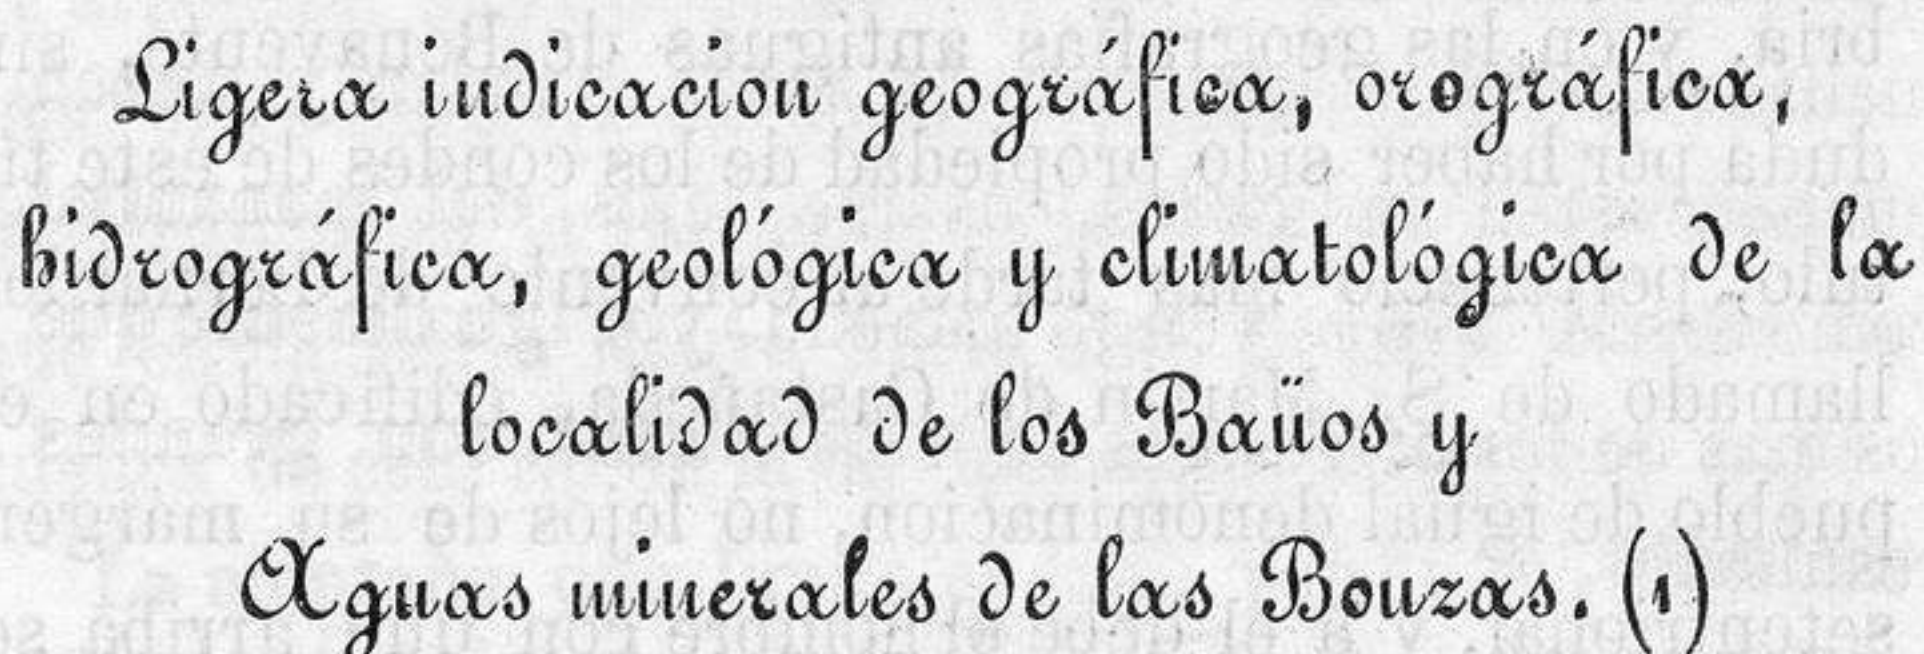 Ligera indicacion geográfica, orográfica,
hidrográfica, geológica y climatológica de la
localidad de los Bäños y
Aguas minerales de las Bouzas. (1)